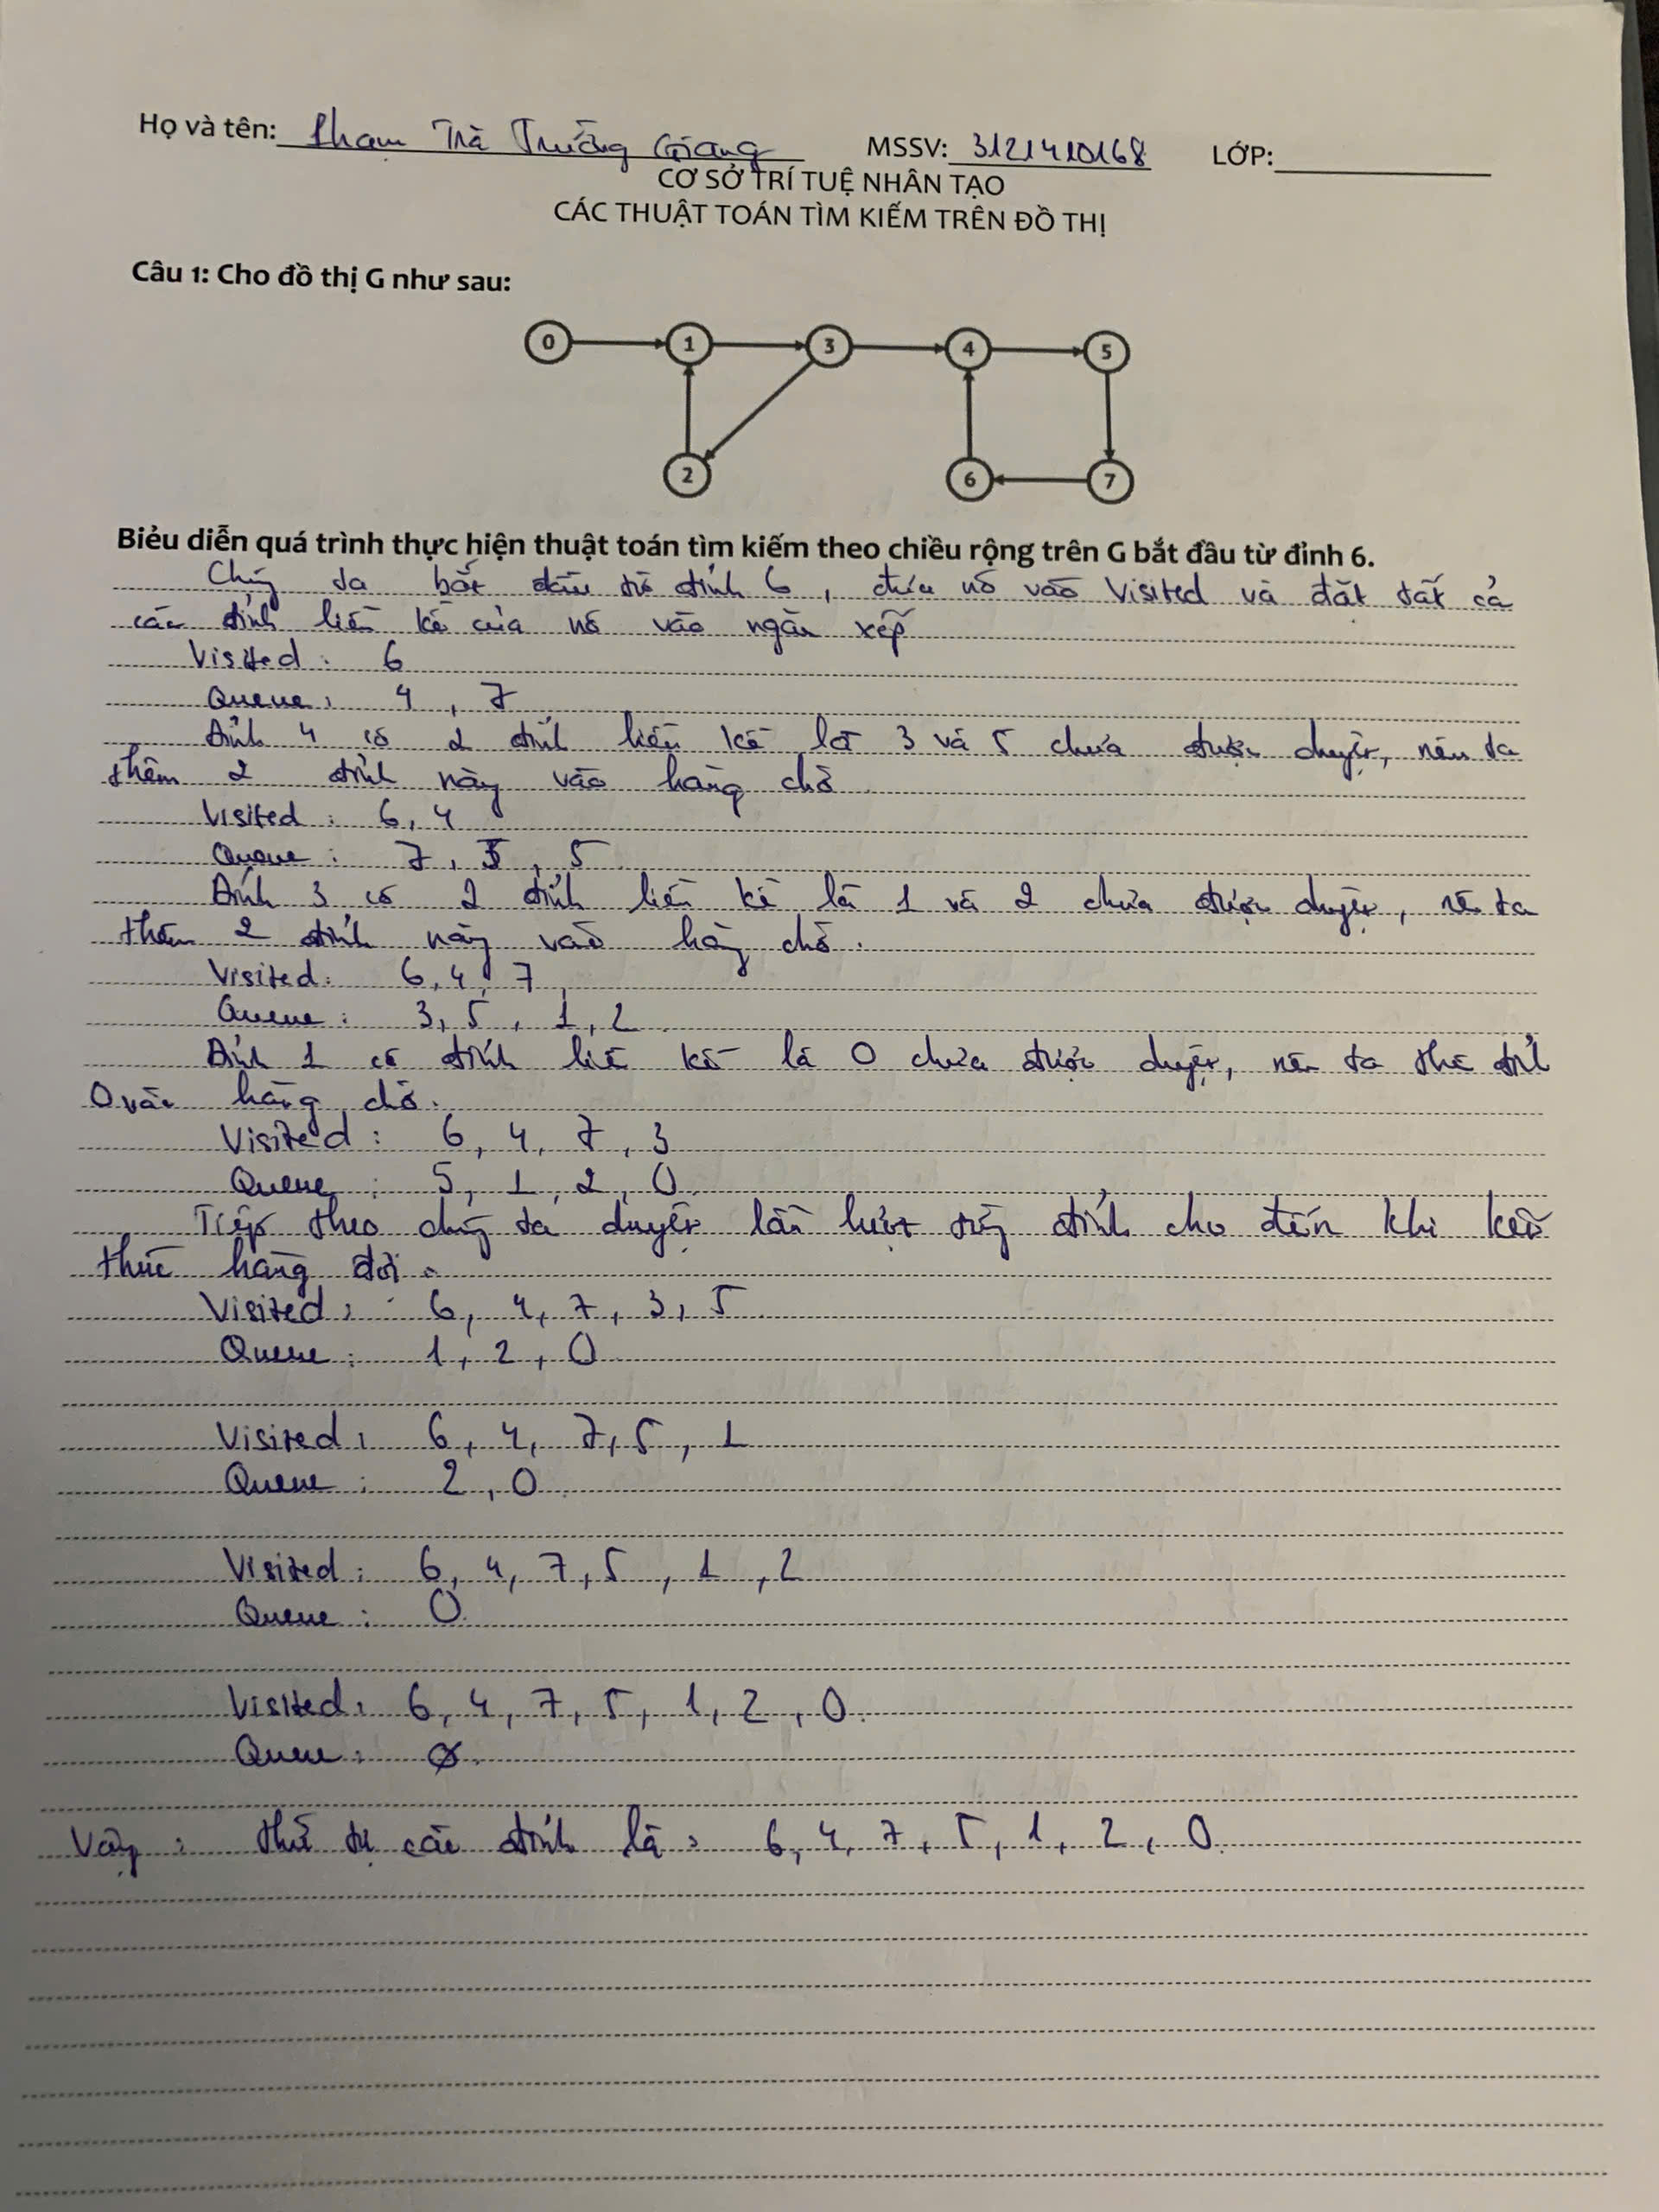 Họ và tên: Phạm Trà Trường Giang MSSV: 3121410168 LỚP:
CƠ SỞ TRÍ TUỆ NHÂN TẠO
CÁC THUẬT TOÁN TÌM KIẾM TRÊN ĐỒ THỊ
Câu 1: Cho đồ thị G như sau:
0 1 3 4 5
2 6 7
Biểu diễn quá trình thực hiện thuật toán tìm kiếm theo chiều rộng trên G bắt đầu từ đỉnh 6.
Chúng ta bắt đầu từ đỉnh 6, đưa nó vào Visited và đặt tất cả
các đỉnh liền kề của nó vào ngăn xếp
Visited: 6
Queue: 4, 7
Đỉnh 4 có 2 đỉnh liền kề là 3 và 5 chưa được duyệt, nên ta
thêm 2 đỉnh này vào hàng chờ
Visited: 6, 4
Queue: 7, 3, 5
Đỉnh 3 có 2 đỉnh liền kề là 1 và 2 chưa được duyệt, nên ta
thêm 2 đỉnh này vào hàng chờ.
Visited: 6, 4, 7
Queue: 3, 5, 1, 2
Đỉnh 1 có đỉnh liền kề là 0 chưa được duyệt, nên ta thêm đỉnh
0 vào hàng chờ.
Visited: 6, 4, 7, 3
Queue: 5, 1, 2, 0
Tiếp theo chúng ta duyệt lần lượt từng đỉnh cho đến khi kết
thúc hàng đợi.
Visited: 6, 4, 7, 3, 5
Queue: 1, 2, 0
Visited: 6, 4, 7, 5, 1
Queue: 2, 0
Visited: 6, 4, 7, 5, 1, 2
Queue: 0
Visited: 6, 4, 7, 5, 1, 2, 0.
Queue: ∅.
Vậy: thứ tự các đỉnh là: 6, 4, 7, 5, 1, 2, 0.